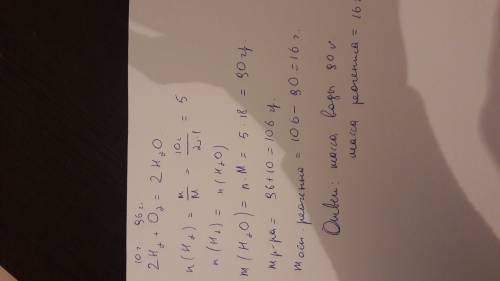 10 г 96 г.
2H₂ + O₂ = 2H₂O
n(H₂) = m/M = 10г/2·1 = 5
n(H₂) = n(H₂O)
m(H₂O) = n·M = 5·18 = 90 гр.
mр-ра = 96+10 = 106 гр.
mост. реагента = 106 - 90 = 16 г.
Ответ: масса воды 90 г
масса реагента = 16 г